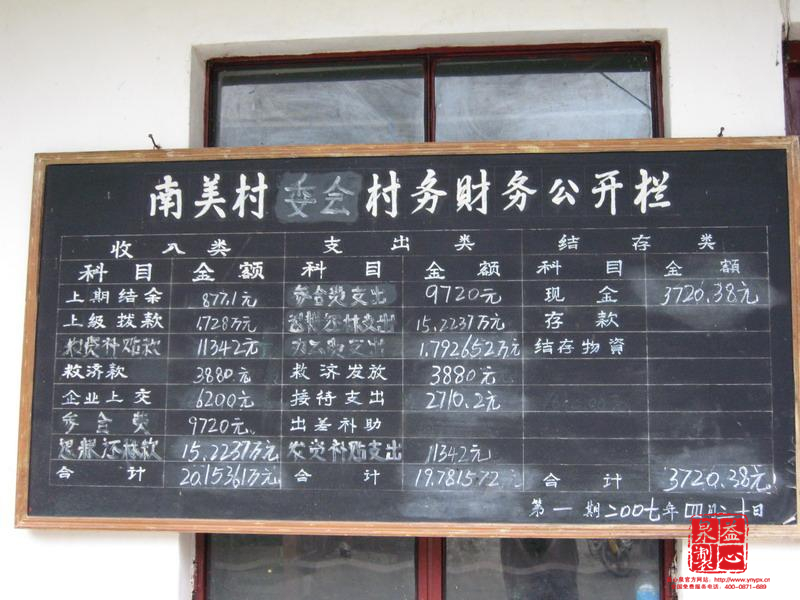 南美村委会村务财务公开栏
收入类 支出类 结存类
科目 金额 科目 金额 科目 金额
上期结余 877.1元 参合费支出 9720元 现金 3720.38元
上级拨款 1.728万元 退耕还林支出 15.2237万元 存款
农资补贴款 11342元 支出 1.792652万元 结存物資
救济款 3880元 救济发放 3880元
企业上交 6200元 接待支出 2710.2元
参合费 9720元 出差补助
退耕还林款 15.2237万元 农资补贴支出 11342元
合计 20.15361万元 合计 19.781572元 合计 3720.38元
第一期二00七年四月二十日
益心泉製
官方网站:http://www.ynypx.cn
国免费服务电话:400-0871-689